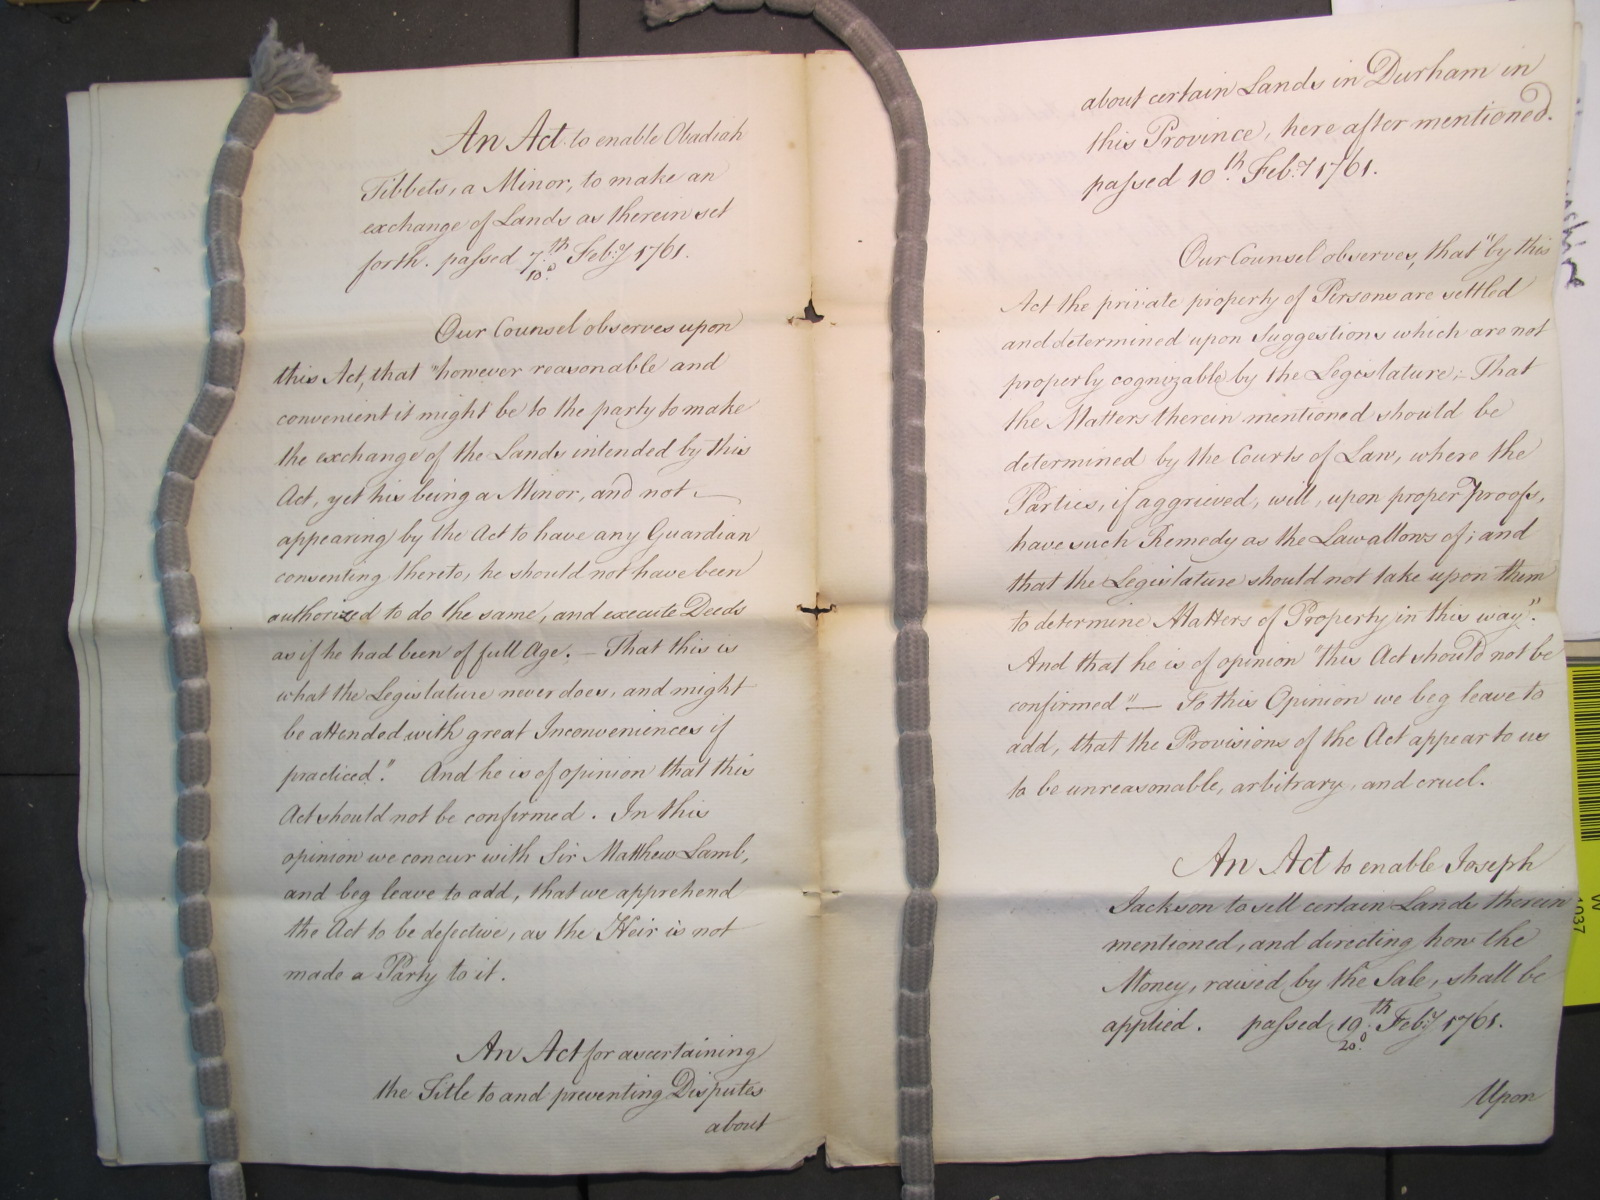 An Act to enable Obadiah
Tibbets, a Minor, to make an
exchange of Lands as therein set
forth. passed 7th Feb:y 1761.
10d
Our Counsel observes upon
this Act, that "however reasonable and
convenient it might be to the party to make
the exchange of the Lands intended by this
Act, yet his being a Minor, and not
appearing by the Act to have any Guardian
consenting thereto, he should not have been
authorized to do the same, and execute Deeds
as if he had been of full Age. – That this is
what the Legislature never does, and might
be attended with great Inconveniences if
practiced." And he is of opinion that this
Act should not be confirmed. In this
opinion we concur with Sir Matthew Lamb,
and beg leave to add, that we apprehend
the Act to be defective, as the Heir is not
made a Party to it.
An Act for ascertaining
the Title to and preventing Disputes
about
about certain Lands in Durham in
this Province, here after mentioned.
passed 10th Feb:y 1761.
Our Counsel observes, that "by this
Act the private property of Persons are settled
and determined upon Suggestions which are not
properly cognizable by the Legislature; – That
the Matters therein mentioned should be
determined by the Courts of Law, where the
Parties, if aggrieved, will, upon proper Proofs,
have such Remedy as the Law allows of; and
that the Legislature should not take upon them
to determine Matters of Property in this way".
And that he is of opinion "this Act should not be
confirmed" – To this Opinion we beg leave to
add, that the Provisions of the Act appear to us
to be unreasonable, arbitrary, and cruel.
An Act to enable Joseph
Jackson to sell certain Lands therein
mentioned, and directing how the
Money, raised by the Sale, shall be
applied. passed 19th Feb:y 1761.
20d
Upon
1037